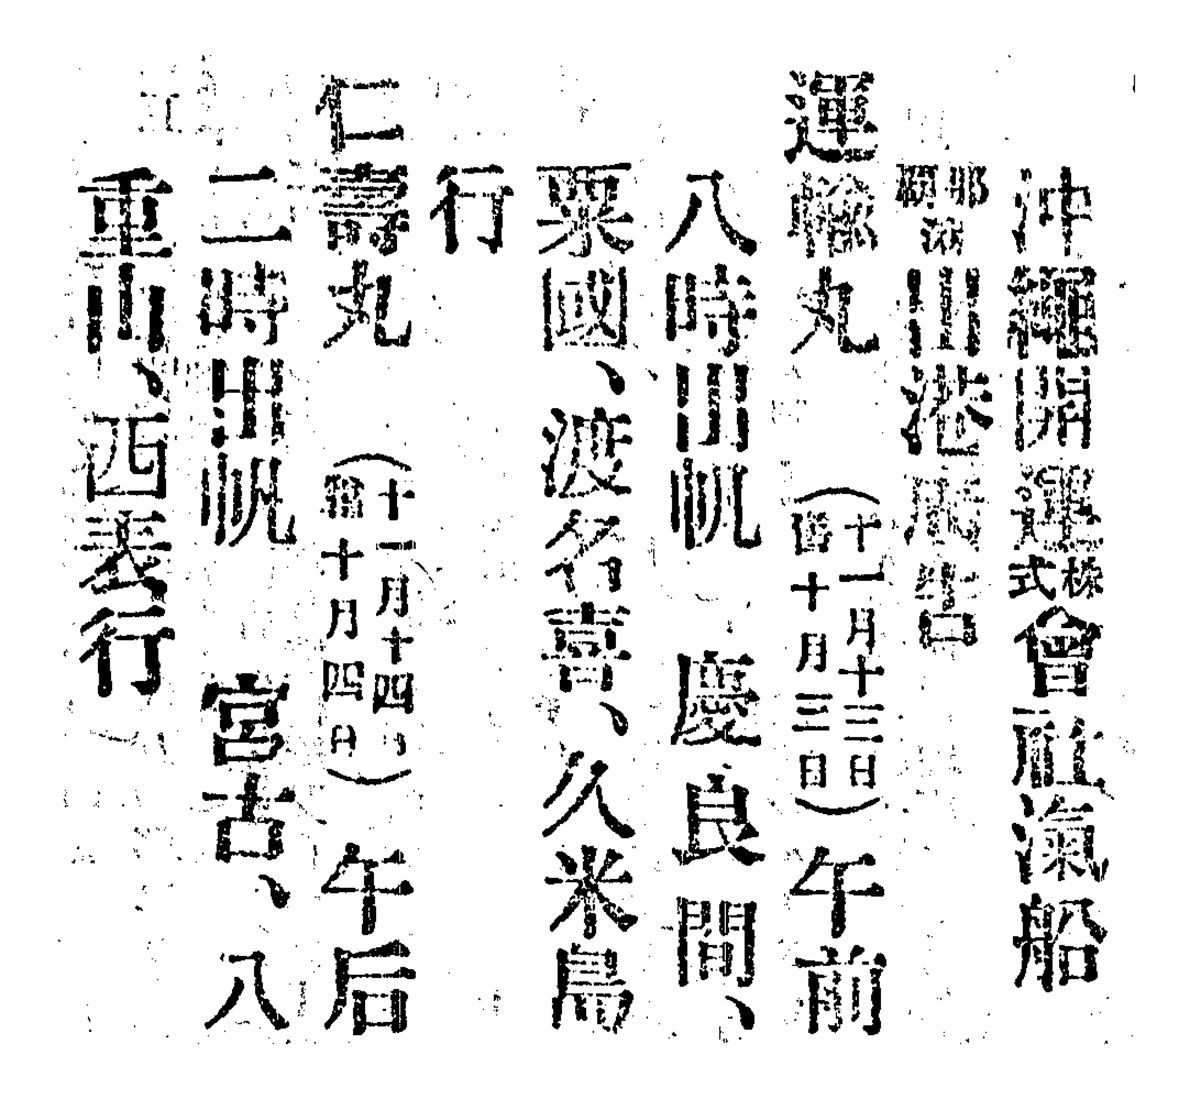 沖繩開運株式會社滊船
那覇港出港廣告
運輸丸（十一月十三日舊十月三日）午前
八時出帆　慶良間、
粟國、渡名喜、久米島
行
仁壽丸（十一月十四日舊十月四日）午后
二時出帆　宮古、八
重山、西表行